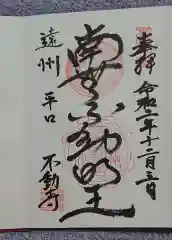 奉拝 令和二年十二月三日
南無不動明王
遠州 平口
不動寺